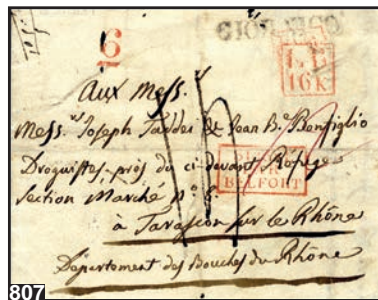 6
GIORNICO
L.E
16K
Aux Mess.rs
Mess.rs Joseph Taddei & Jean B.e Bonfiglio
Droguistes près du ci-devant Refuge
section Marché n.o 6.
BELFORT
à Tarascon sur le Rhône
Département des Bouches du Rhône
807